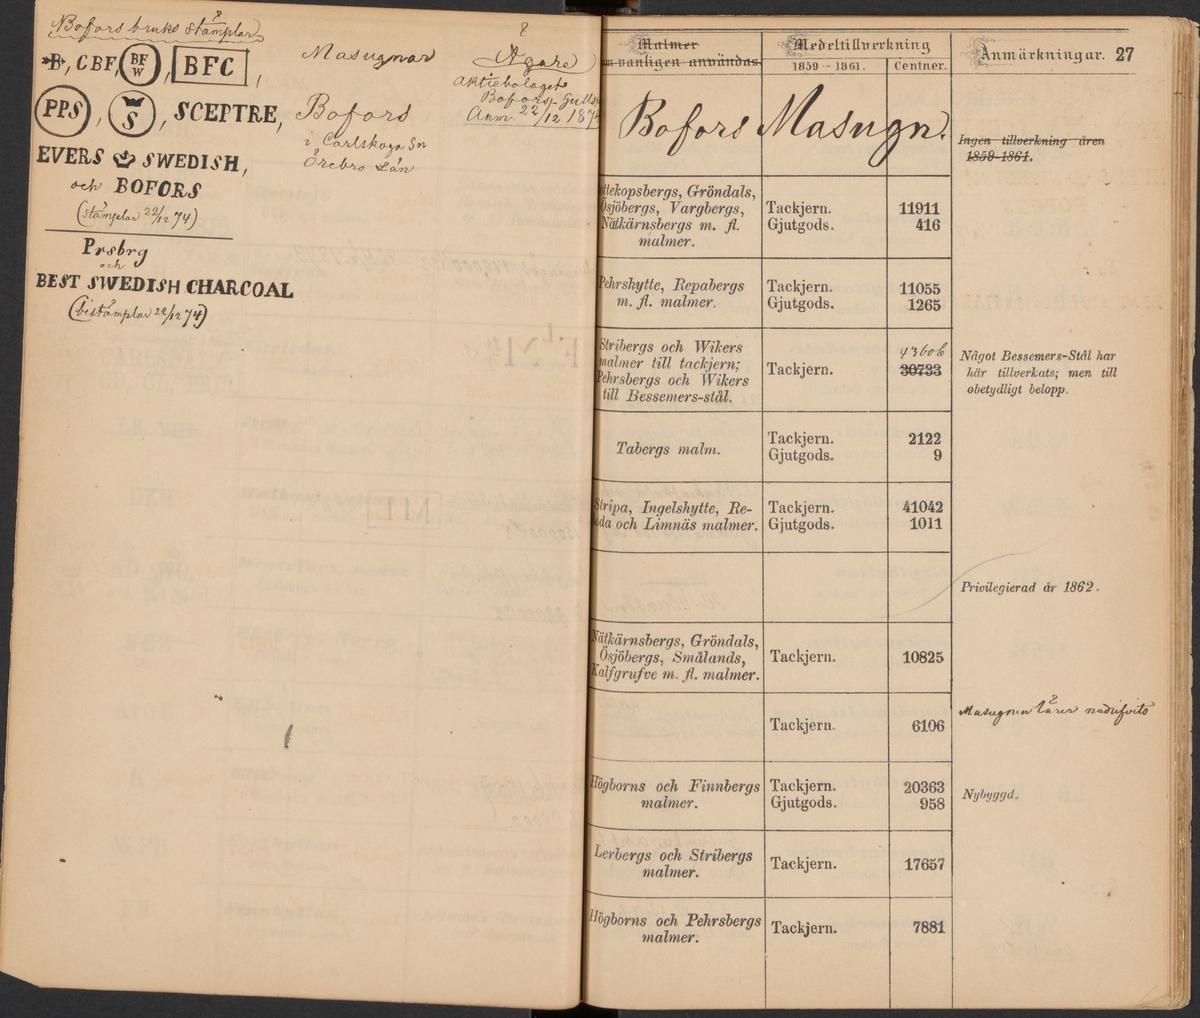 Bofors bruks stämplar
B, CBF, BF W, BFC,
PPS, S, SCEPTRE,
EVERS SWEDISH,
och BOFORS
(stämplar 22/12 74)
Prsbrg
och
BEST SWEDISH CHARCOAL
(bistämplar 22/12 74)
Masugnar
Bofors
i Carlskoga Sn
Örebro Län
Ägare
Aktiebolaget
Bofors-Gulls
Anm. 22/12 187
Malmer
vanligen användas.
Medeltillverkning
1859-1861. Centner.
Anmärkningar. 27
Bofors Masugn.
Ingen tillverkning åren
1859-1861.
ttekopsbergs, Gröndals,
Ösjöbergs, Vargbergs,
Nätkärnsbergs m. fl.
malmer.
Tackjern. 11911
Gjutgods. 416
Pehrshytte, Repabergs
m. fl. malmer.
Tackjern. 11055
Gjutgods. 1265
Stribergs och Wikers
malmer till tackjern;
Pehrsbergs och Wikers
till Bessemers-stål.
43606
Tackjern. 30733
Något Bessemers-Stål har
här tillverkats; men till
obetydligt belopp.
Tabergs malm.
Tackjern. 2122
Gjutgods. 9
Stripa, Ingelshytte, Re-
oda och Limnäs malmer.
Tackjern. 41042
Gjutgods. 1011
Privilegierad år 1862.
Nätkärnsbergs, Gröndals,
Ösjöbergs, Smålands,
Kalfgrufve m. fl. malmer.
Tackjern. 10825
Tackjern. 6106
Masugnen lärer
Högborns och Finnbergs
malmer.
Tackjern. 20363
Gjutgods. 958
Nybyggd.
Lerbergs och Stribergs
malmer.
Tackjern. 17657
Högborns och Pehrsbergs
malmer.
Tackjern. 7881